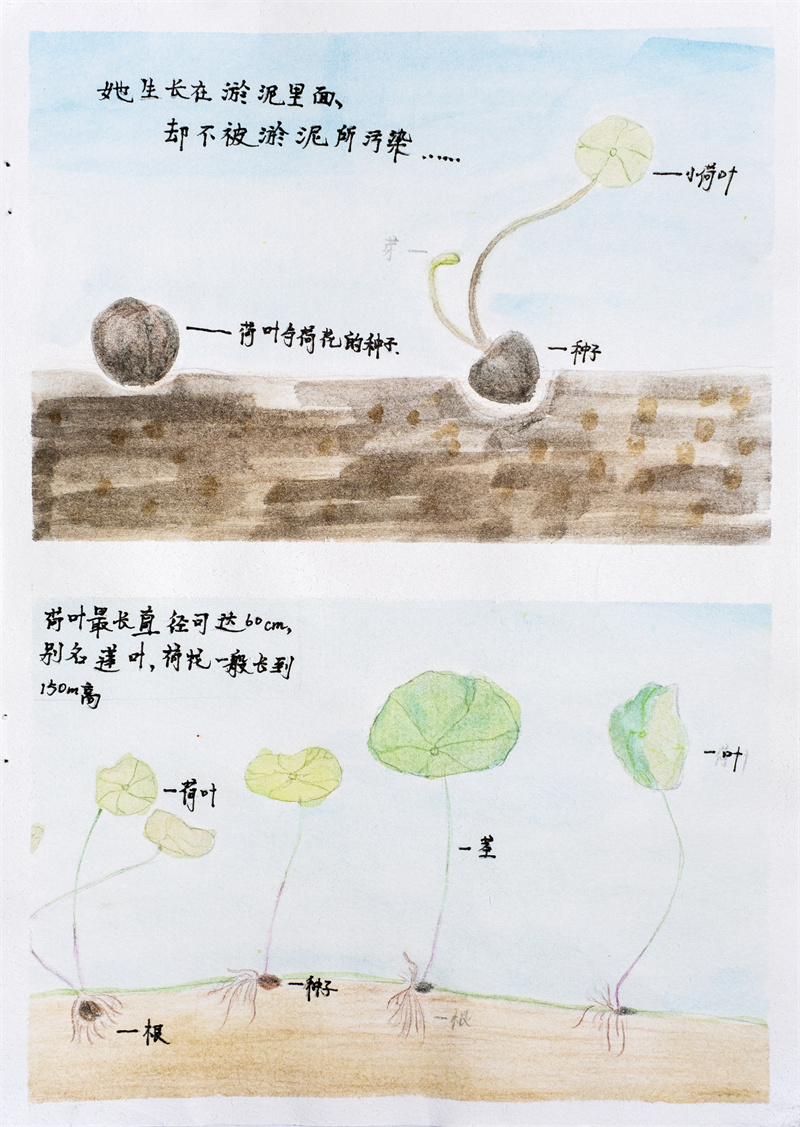 她生长在淤泥里面、
却不被淤泥所污染……
小荷叶
芽
荷叶与荷花的种子.
种子
荷叶最长直径可达60cm,
别名莲叶,荷花一般长到
150m高
叶
荷叶
茎
种子
根
根